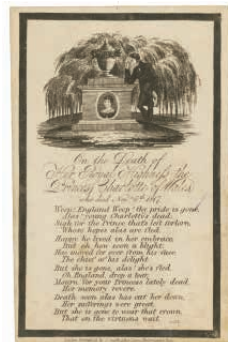 On the Death of
Her Royal Highness the
Princess Charlotte of Wales,
who died Nov. 6th 1817
Weep! England Weep! the pride is gone,
Alas Young Charlotte's dead,
Sigh for the Prince that's left forlorn,
Whose hopes alas are fled.
Happy he lived in her embrace
But oh how soon a blight
Has moved for ever from his view
The chief of his delight
But she is gone, alas! she's fled
Oh England, drop a tear,
Mourn for your Princess lately dead
Her memory revere.
Death soon alas has cut her down,
Her sufferings were great
But she is gone to wear that crown,
That on the virtuous wait.